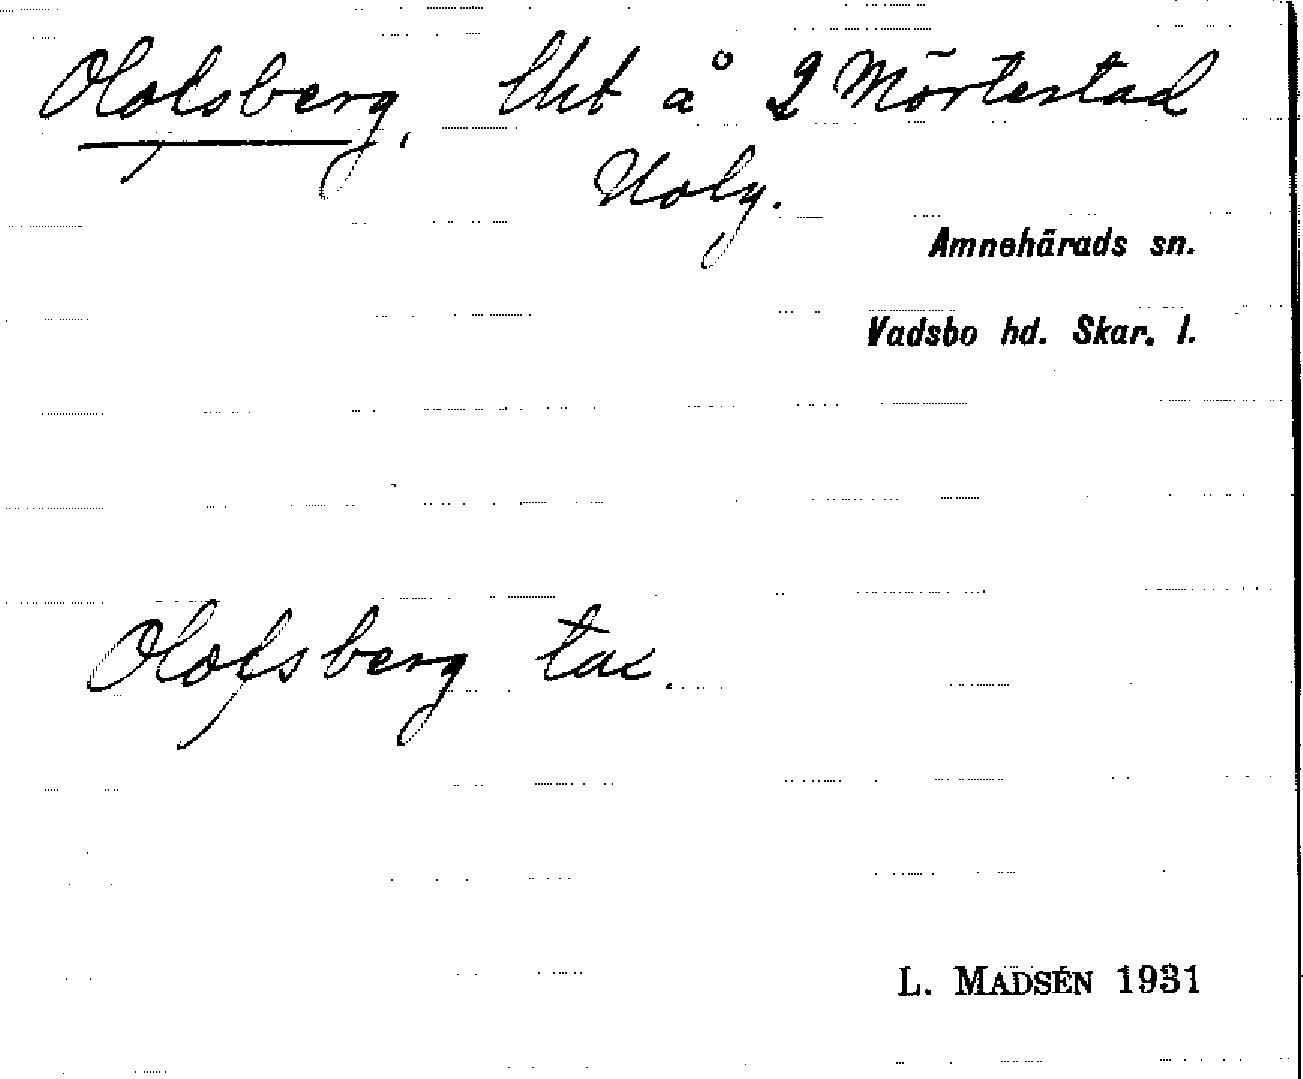 Olofsberg, lht å 2 Mörtestad
Amnehärads sn.
Vadsbo hd. Skar. l.
Olofsberg tax.
L. MADSÉN 1931